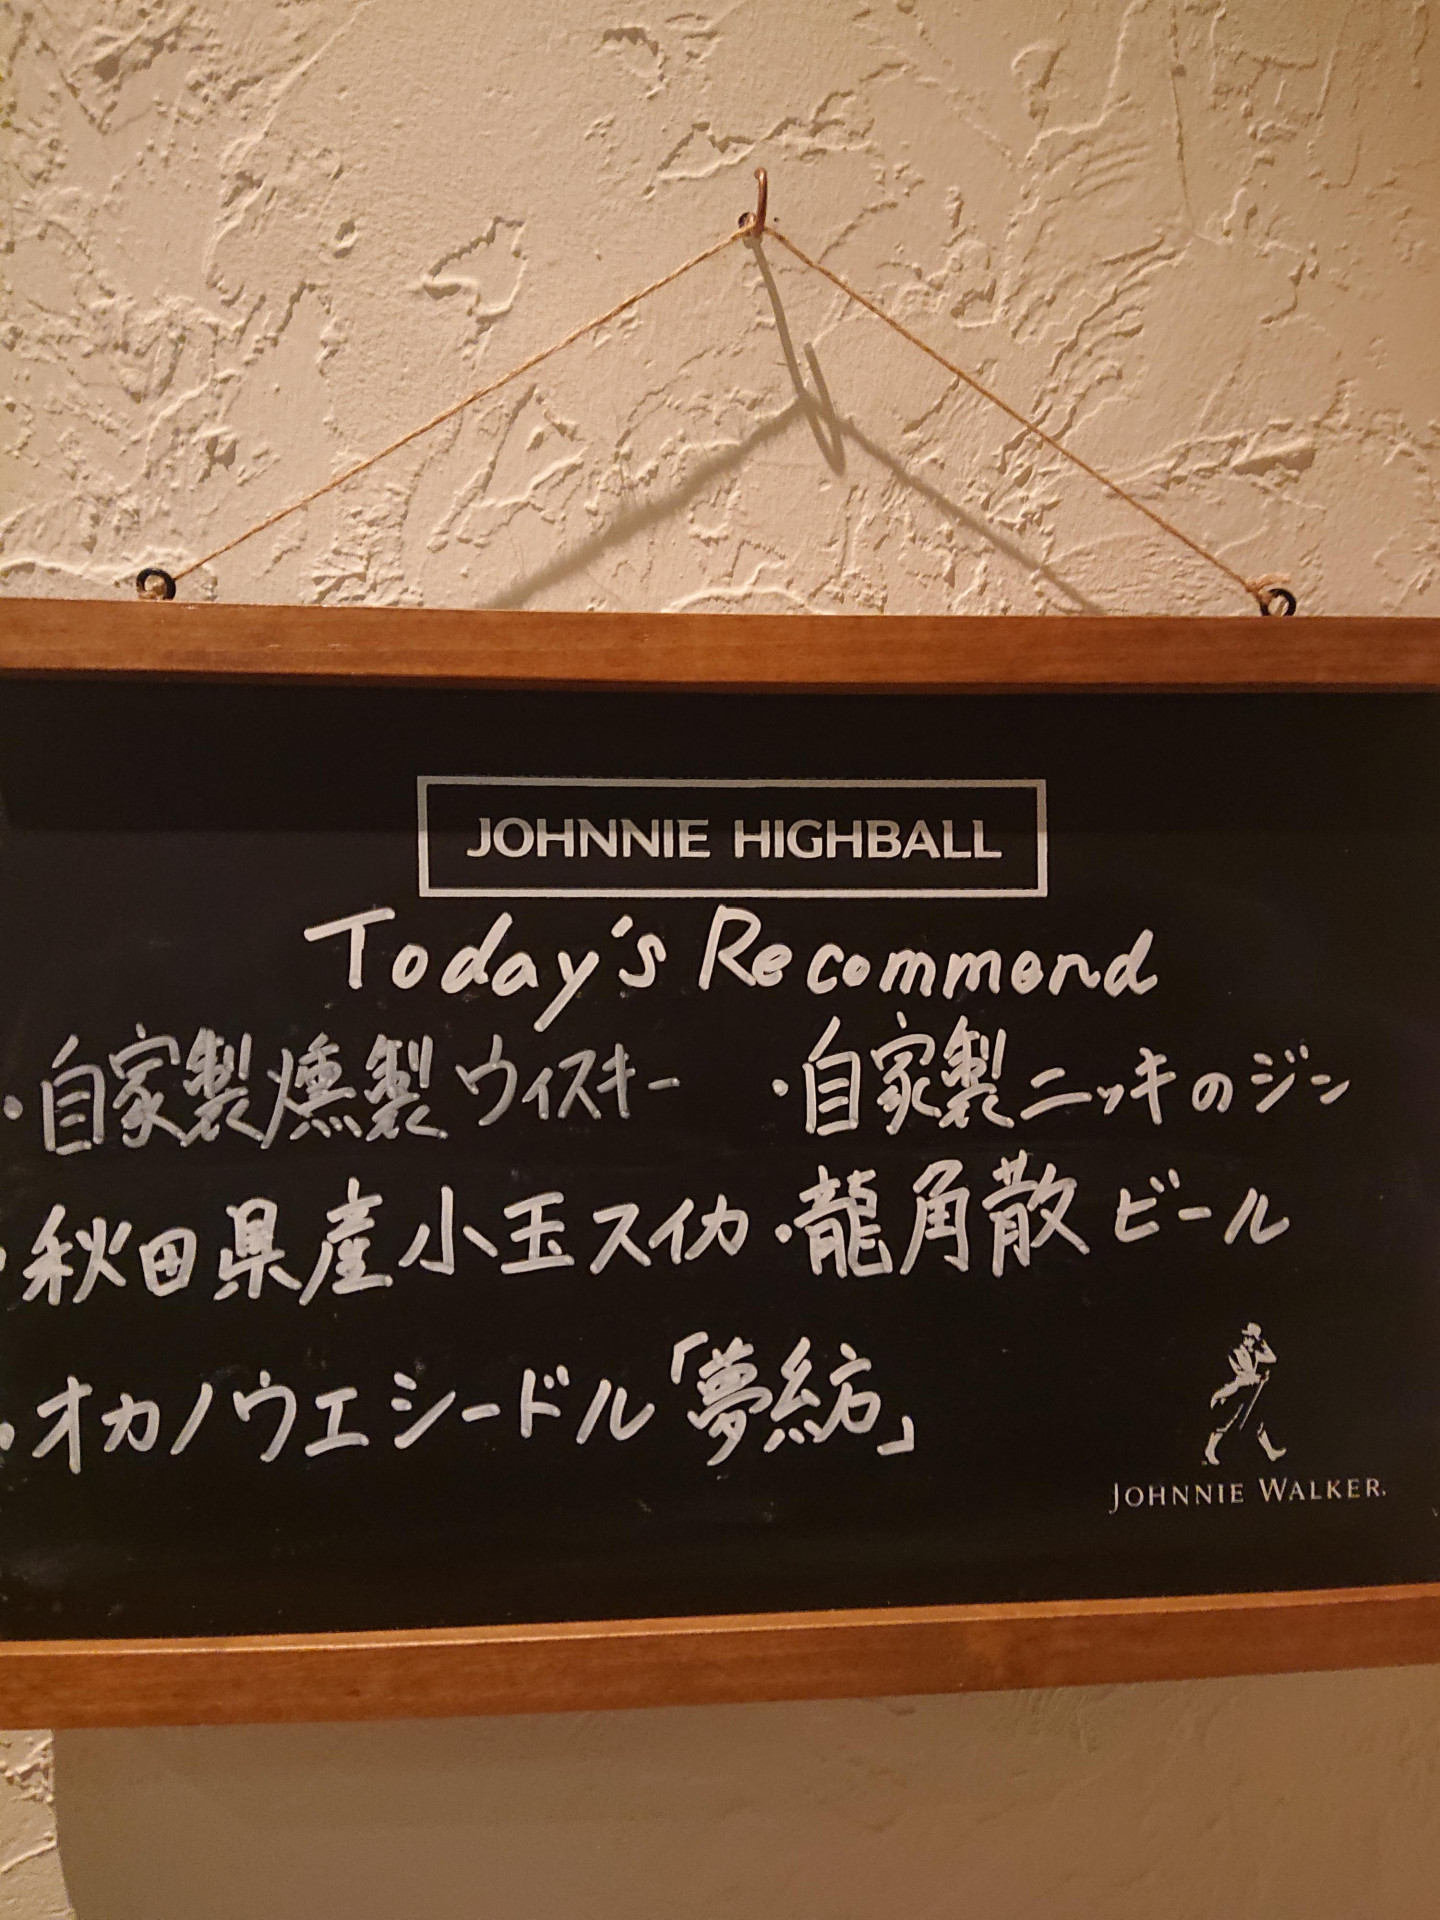 JOHNNIE HIGHBALL
Today's Recommend
・自家製燻製ウィスキー ・自家製ニッキのジン
・秋田県産小玉スイカ ・龍角散ビール
・オカノウエシードル「夢紡」
JOHNNIE WALKER.